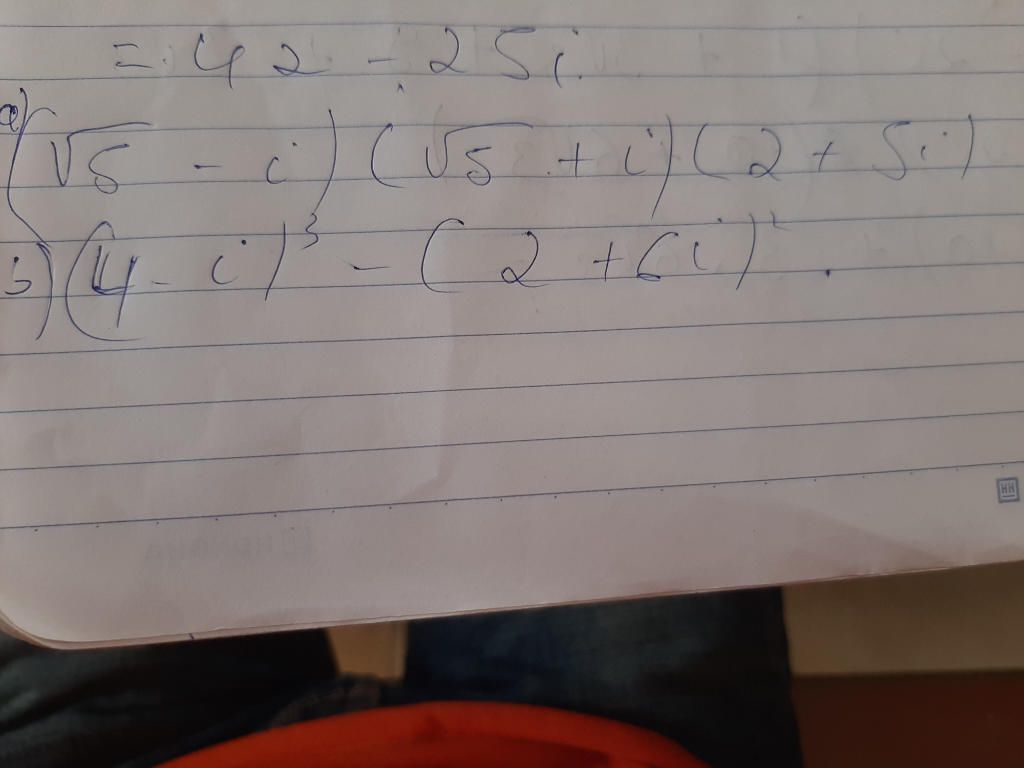 = 42 - 25i
a) (√5 - i) (√5 + i) (2 + 5i)
b) (4 - i)³ - (2 + 6i)² .